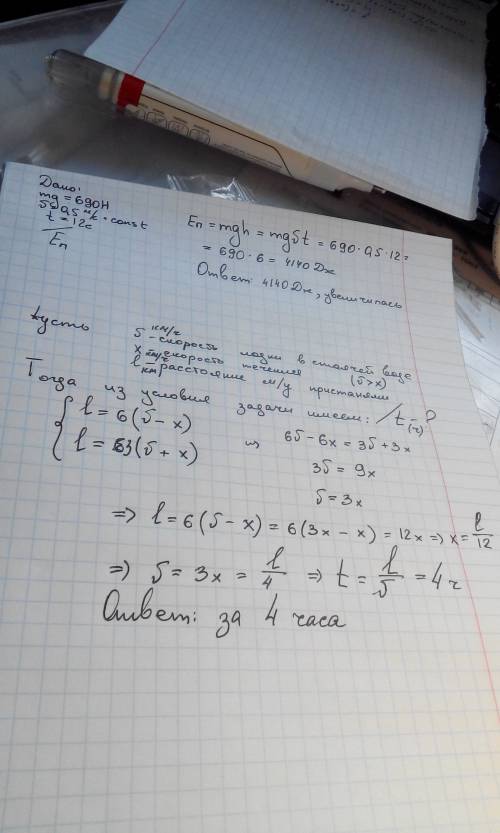 Дано:
mg = 690 Н
υ = 0,5 м/с = const
t = 12 с
Eп
Eп = mgh = mgυt = 690·0,5·12 =
= 690·6 = 4140 Дж
Ответ: 4140 Дж, увеличилась
Пусть
υ км/ч - скорость лодки в стоячей воде
x км/ч - скорость течения (υ > x)
l км - расстояние м/у пристанями
Тогда из условия задачи имеем: / t - ? (ч)
l = 6(υ - x)
l = 3(υ + x)
⇒ 6υ - 6x = 3υ + 3x
3υ = 9x
υ = 3x
⇒ l = 6(υ - x) = 6(3x - x) = 12x ⇒ x = l/12
⇒ υ = 3x = l/4 ⇒ t = l/υ = 4 ч
Ответ: за 4 часа